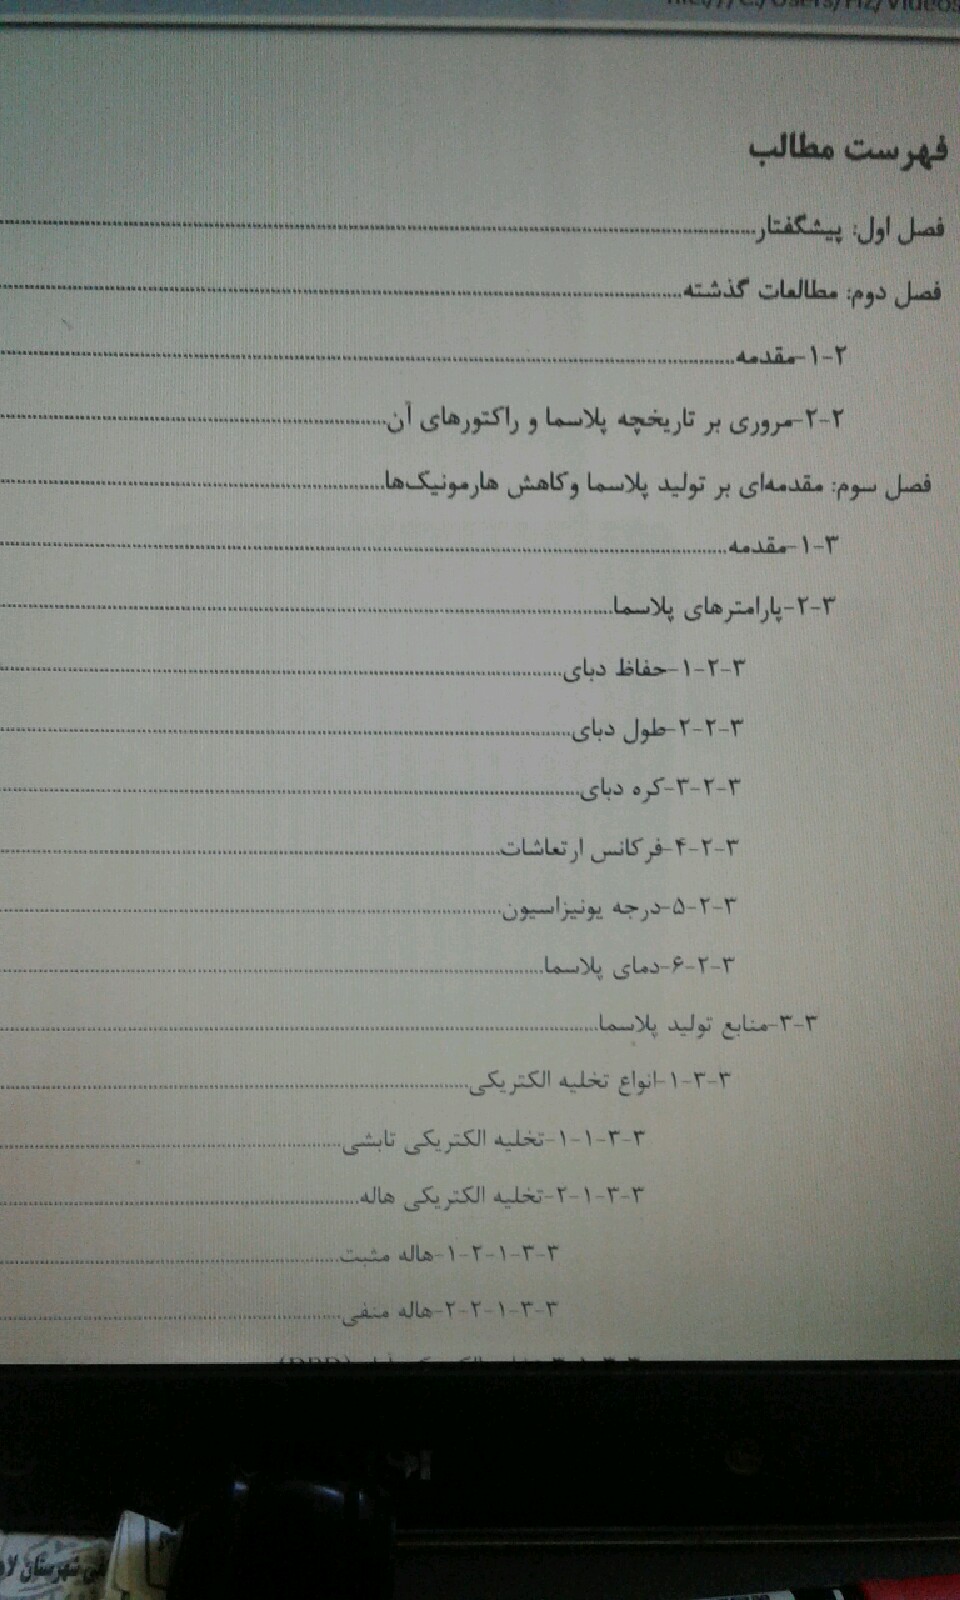 فهرست مطالب
فصل اول: پیشگفتار
فصل دوم: مطالعات گذشته
۲-۱-مقدمه
۲-۲-مروری بر تاریخچه پلاسما و راکتورهای آن
فصل سوم: مقدمه‌ای بر تولید پلاسما و کاهش هارمونیک‌ها
۳-۱-مقدمه
۳-۲-پارامترهای پلاسما
۳-۲-۱-حفاظ دبای
۳-۲-۲-طول دبای
۳-۲-۳-کره دبای
۳-۲-۴-فرکانس ارتعاشات
۳-۲-۵-درجه یونیزاسیون
۳-۲-۶-دمای پلاسما
۳-۳-منابع تولید پلاسما
۳-۳-۱-انواع تخلیه الکتریکی
۳-۳-۱-۱-تخلیه الکتریکی تابشی
۳-۳-۱-۲-تخلیه الکتریکی هاله
۳-۳-۱-۲-۱-هاله مثبت
۳-۳-۱-۲-۲-هاله منفی
شهرستان